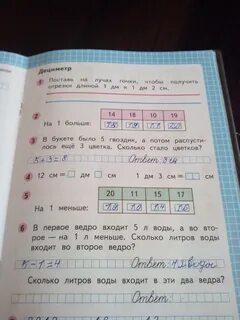 Дециметр
1 Поставь на лучах точки, чтобы получить
отрезки длиной 1 дм и 1 дм 2 см.
2
14 18 10 19
На 1 больше:
3 В букете было 5 гвоздик, а потом распусти-
лось ещё 3 цветка. Сколько стало цветков?
5+3=8 Ответ:
4 12 см = дм см 1 дм 3 см = см
5
20 11 15 17
На 1 меньше:
6 В первое ведро входит 5 л воды, а во вто-
рое — на 1 л меньше. Сколько литров воды
входит во второе ведро?
5-1=4 Ответ:
Сколько литров воды входит в эти два ведра?
Ответ: